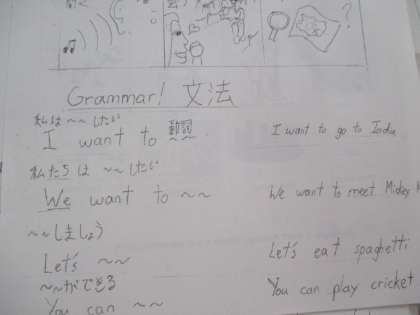 ?
Grammar! 文法
私は ~~したい
I want to 動詞
I want to go to India
私たちは ~~したい
We want to ~~
We want to meet Mickey
~~しましょう
Let's ~~
Let's eat spaghetti
~~ができる
You can ~~
You can play cricket